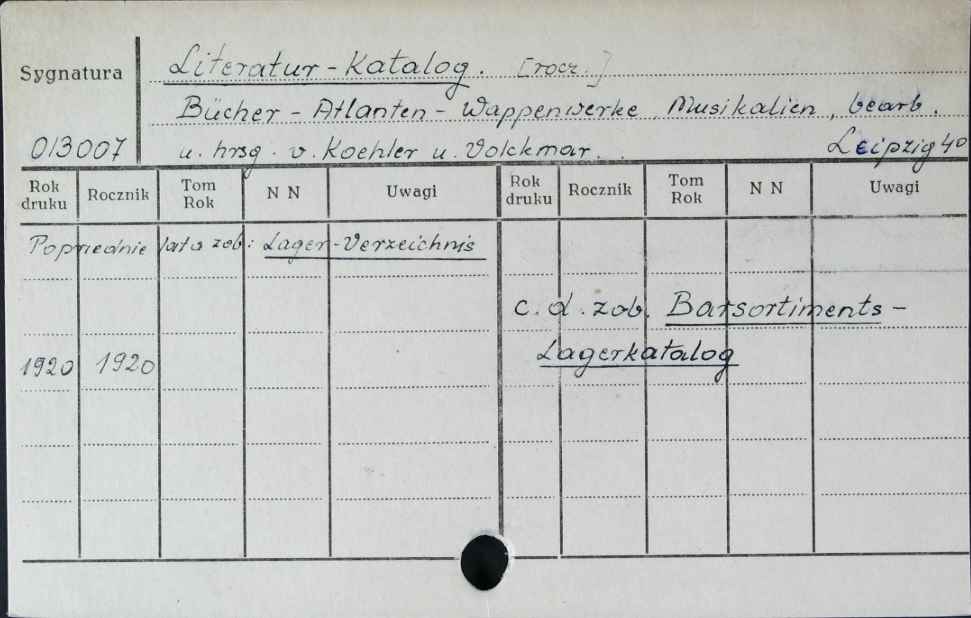 Sygnatura
Literatur - Katalog. [rocz.]
Bücher - Atlanten - Wappenwerke, Musikalien, bearb.
013007
u. hrsg. v. Koehler u. Volckmar. . Leipzig 4°
Rok druku Rocznik Tom Rok N N Uwagi Rok druku Rocznik Tom Rok N N Uwagi
Poprzednie lata zob: Lager-Verzeichnis
c. d. zob. Barsortiments -
Lagerkatalog
1920 1920